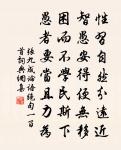 性習自然分遠近
智愚安得便無移
困而不學民斯下
愚者要當且力為
張九成論語絕句一百
首詞典網集